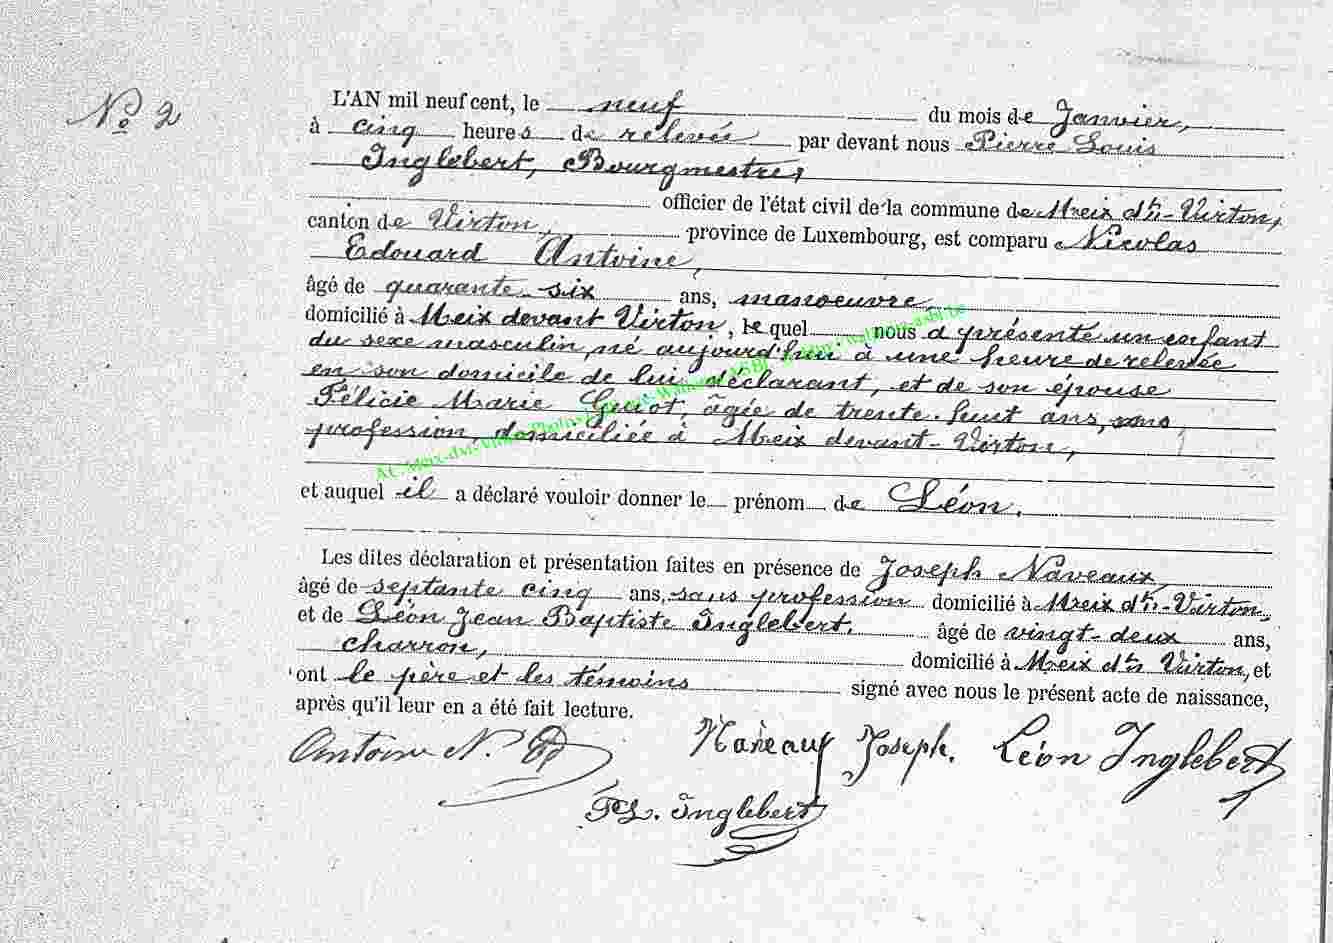 No 2
L'AN mil neuf cent, le neuf du mois de Janvier,
à cinq heures de relevée par devant nous Pierre Louis
Inglebert, Bourgmestre,
officier de l'état civil de la commune de Meix dt-Virton,
canton de Virton, province de Luxembourg, est comparu Nicolas
Edouard Antoine,
âgé de quarante-six ans, manoeuvre,
domicilié à Meix devant Virton, le quel nous a présenté un enfant
du sexe masculin, né aujourd'hui à une heure de relevée
en son domicile de lui déclarant, et de son épouse
Félicie Marie Guiot, âgée de trente-huit ans, sans
profession, domiciliée à Meix devant-Virton,
et auquel il a déclaré vouloir donner le prénom de Léon.
Les dites déclaration et présentation faites en présence de Joseph Naveaux,
âgé de septante cinq ans, sans profession domicilié à Meix dt-Virton,
et de Léon Jean Baptiste Inglebert, âgé de vingt-deux ans,
charron, domicilié à Meix dt Virton, et
ont le père et les témoins signé avec nous le présent acte de naissance,
après qu'il leur en a été fait lecture.
Antoine N. Naveaux Joseph. Léon Inglebert
PL. Inglebert